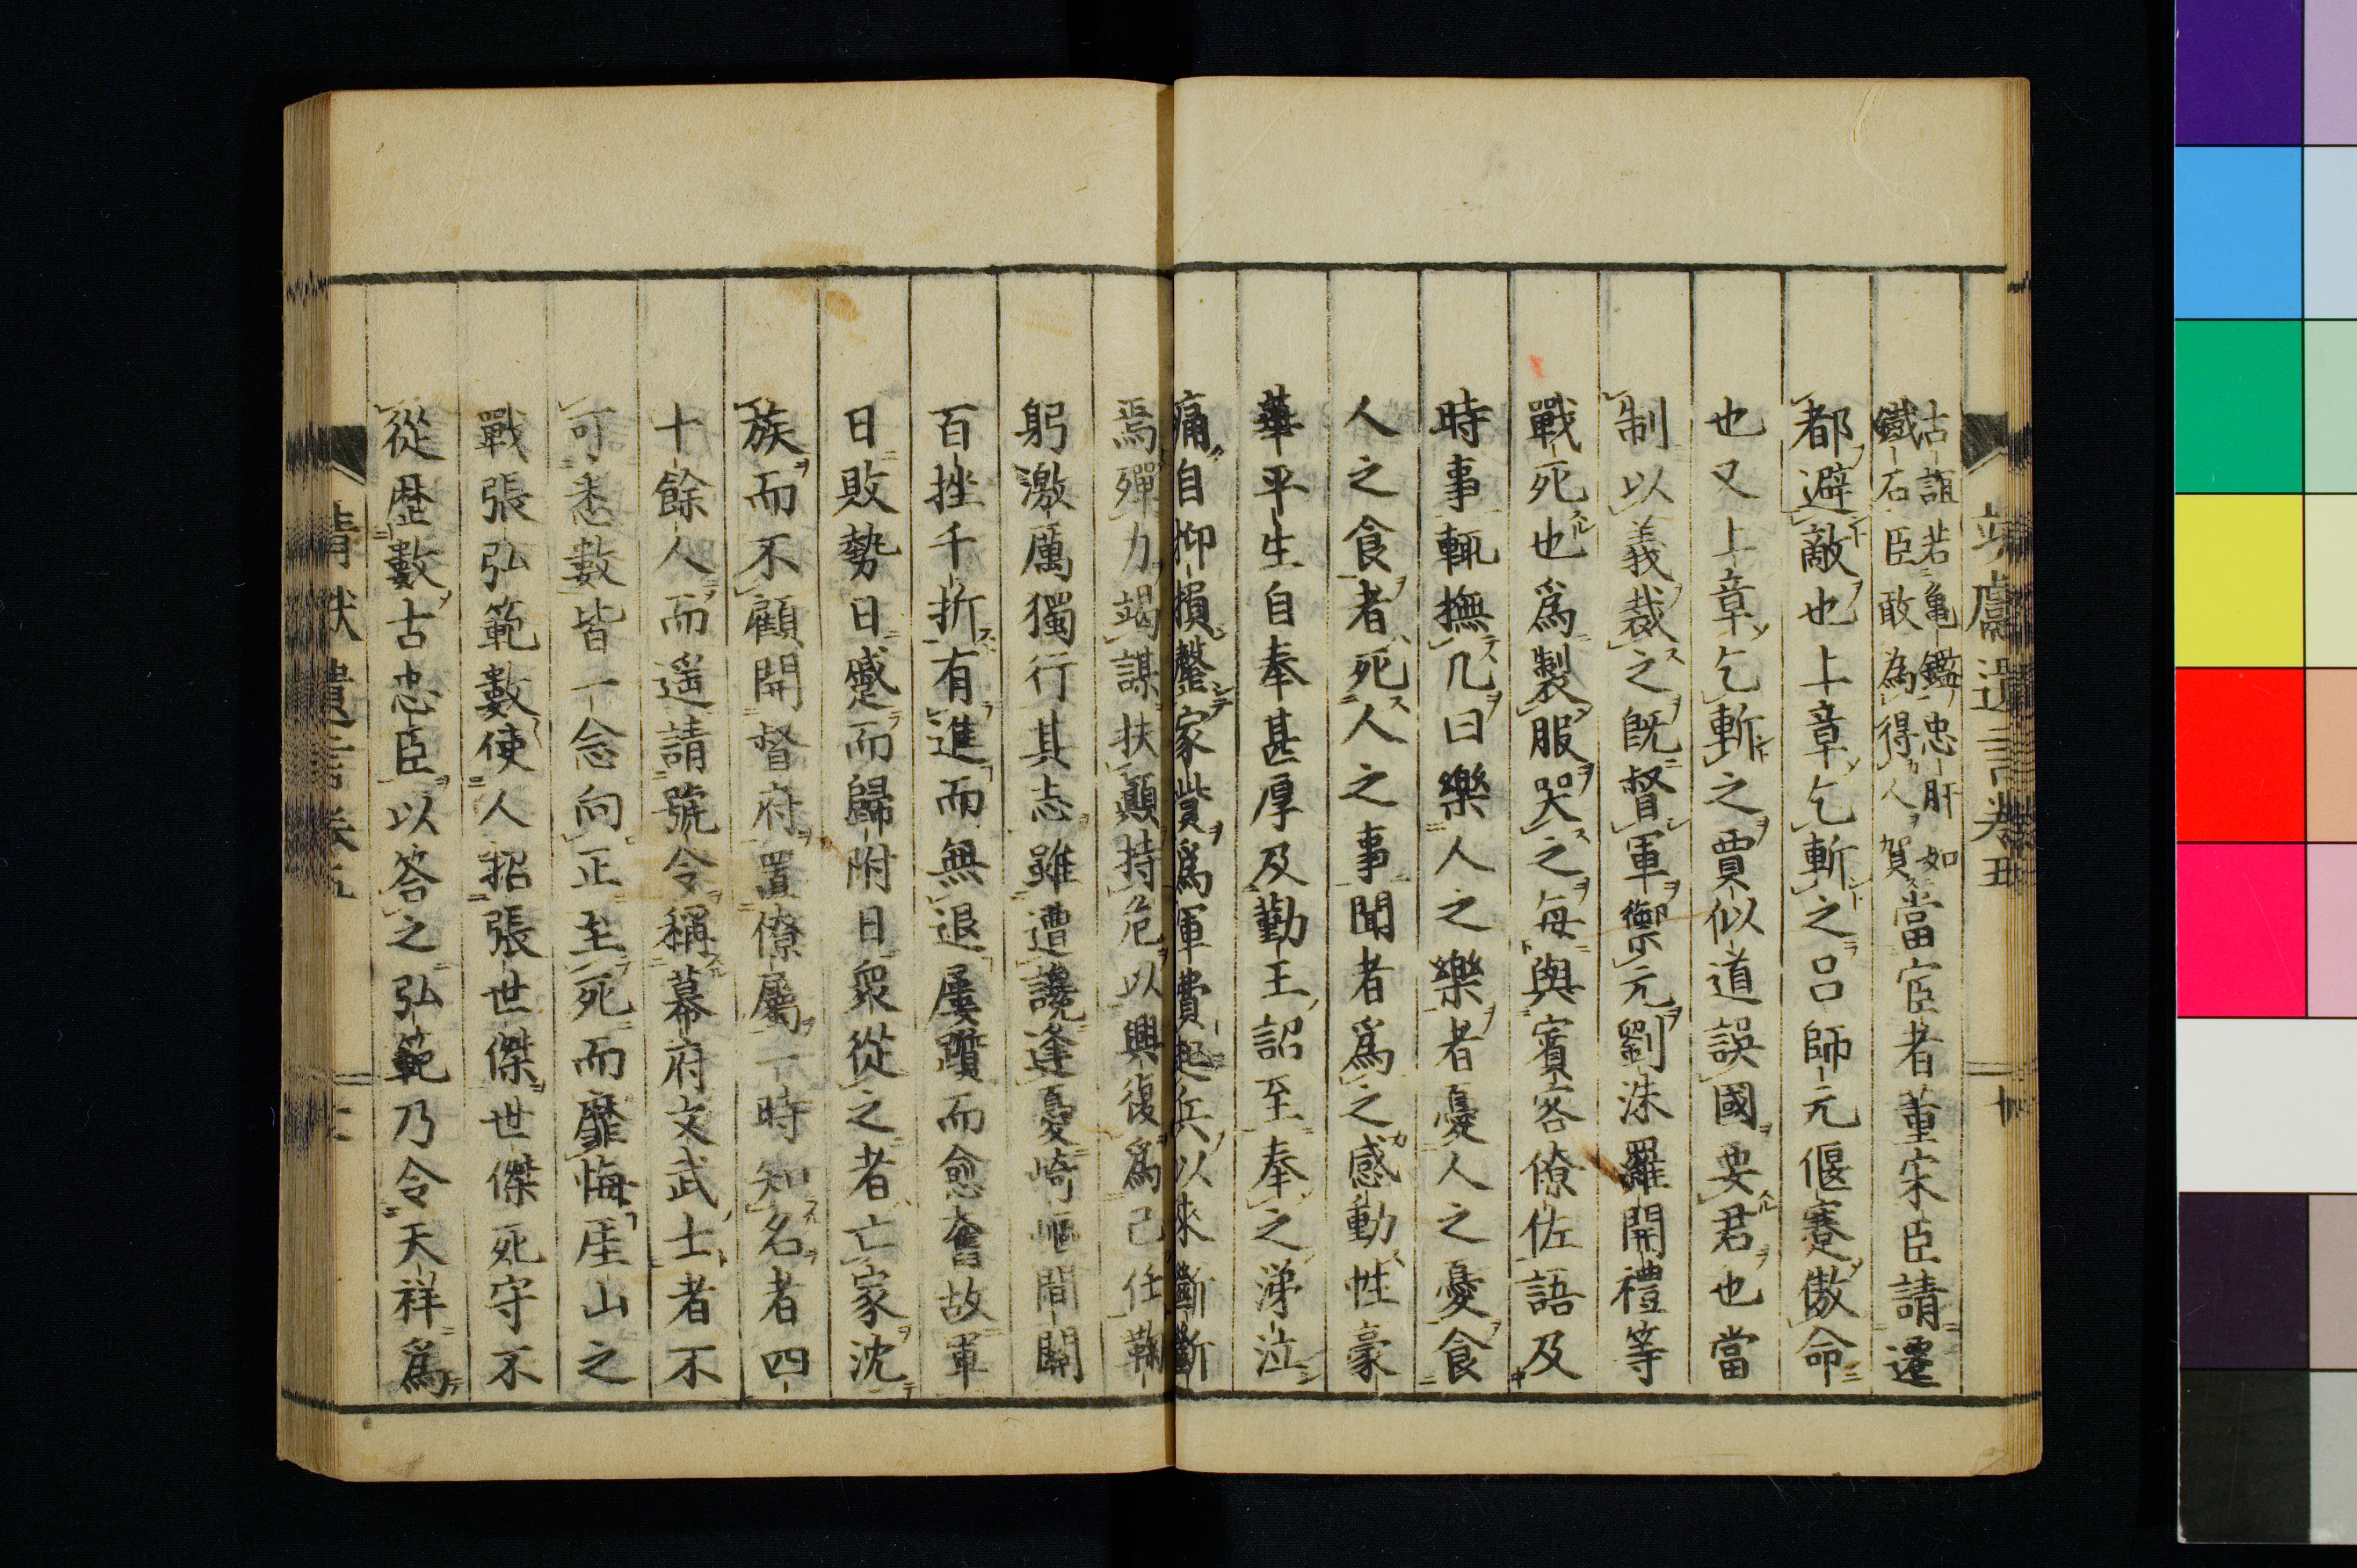 古誼若亀鑑忠肝如
鐵石臣敢為得人賀
當宦者董宋臣請遷
都避敵也上章乞斬之呂師元偃蹇傲命
也又上章乞斬之賈似道誤國要君也當
制以義裁之既督軍禦元劉洙羅開禮等
戰死也爲製服哭之每與賓客僚佐語及
時事輒撫几曰樂人之樂者憂人之憂食
人之食者死人之事聞者爲之感動性豪
華平生自奉甚厚及勤王詔至奉之涕泣
痛自抑損罄家貲爲軍費起兵以來斷斷
焉殫力竭謀扶顛持危以興復爲己任鞠
躬激厲獨行其志雖遭讒逢憂崎嶇間關
百挫千折有進而無退屡躓而愈奮故軍
日敗勢日蹙而歸附日衆從之者亡家沈
族而不顧開督府置僚屬一時知名者四
十餘人而遥請號令稱幕府文武士者不
可悉數皆一念向正至死而靡悔厓山之
戰張弘範數使人招張世傑世傑死守不
從歴數古忠臣以答之弘範乃令天祥爲
靖献遺言巻五